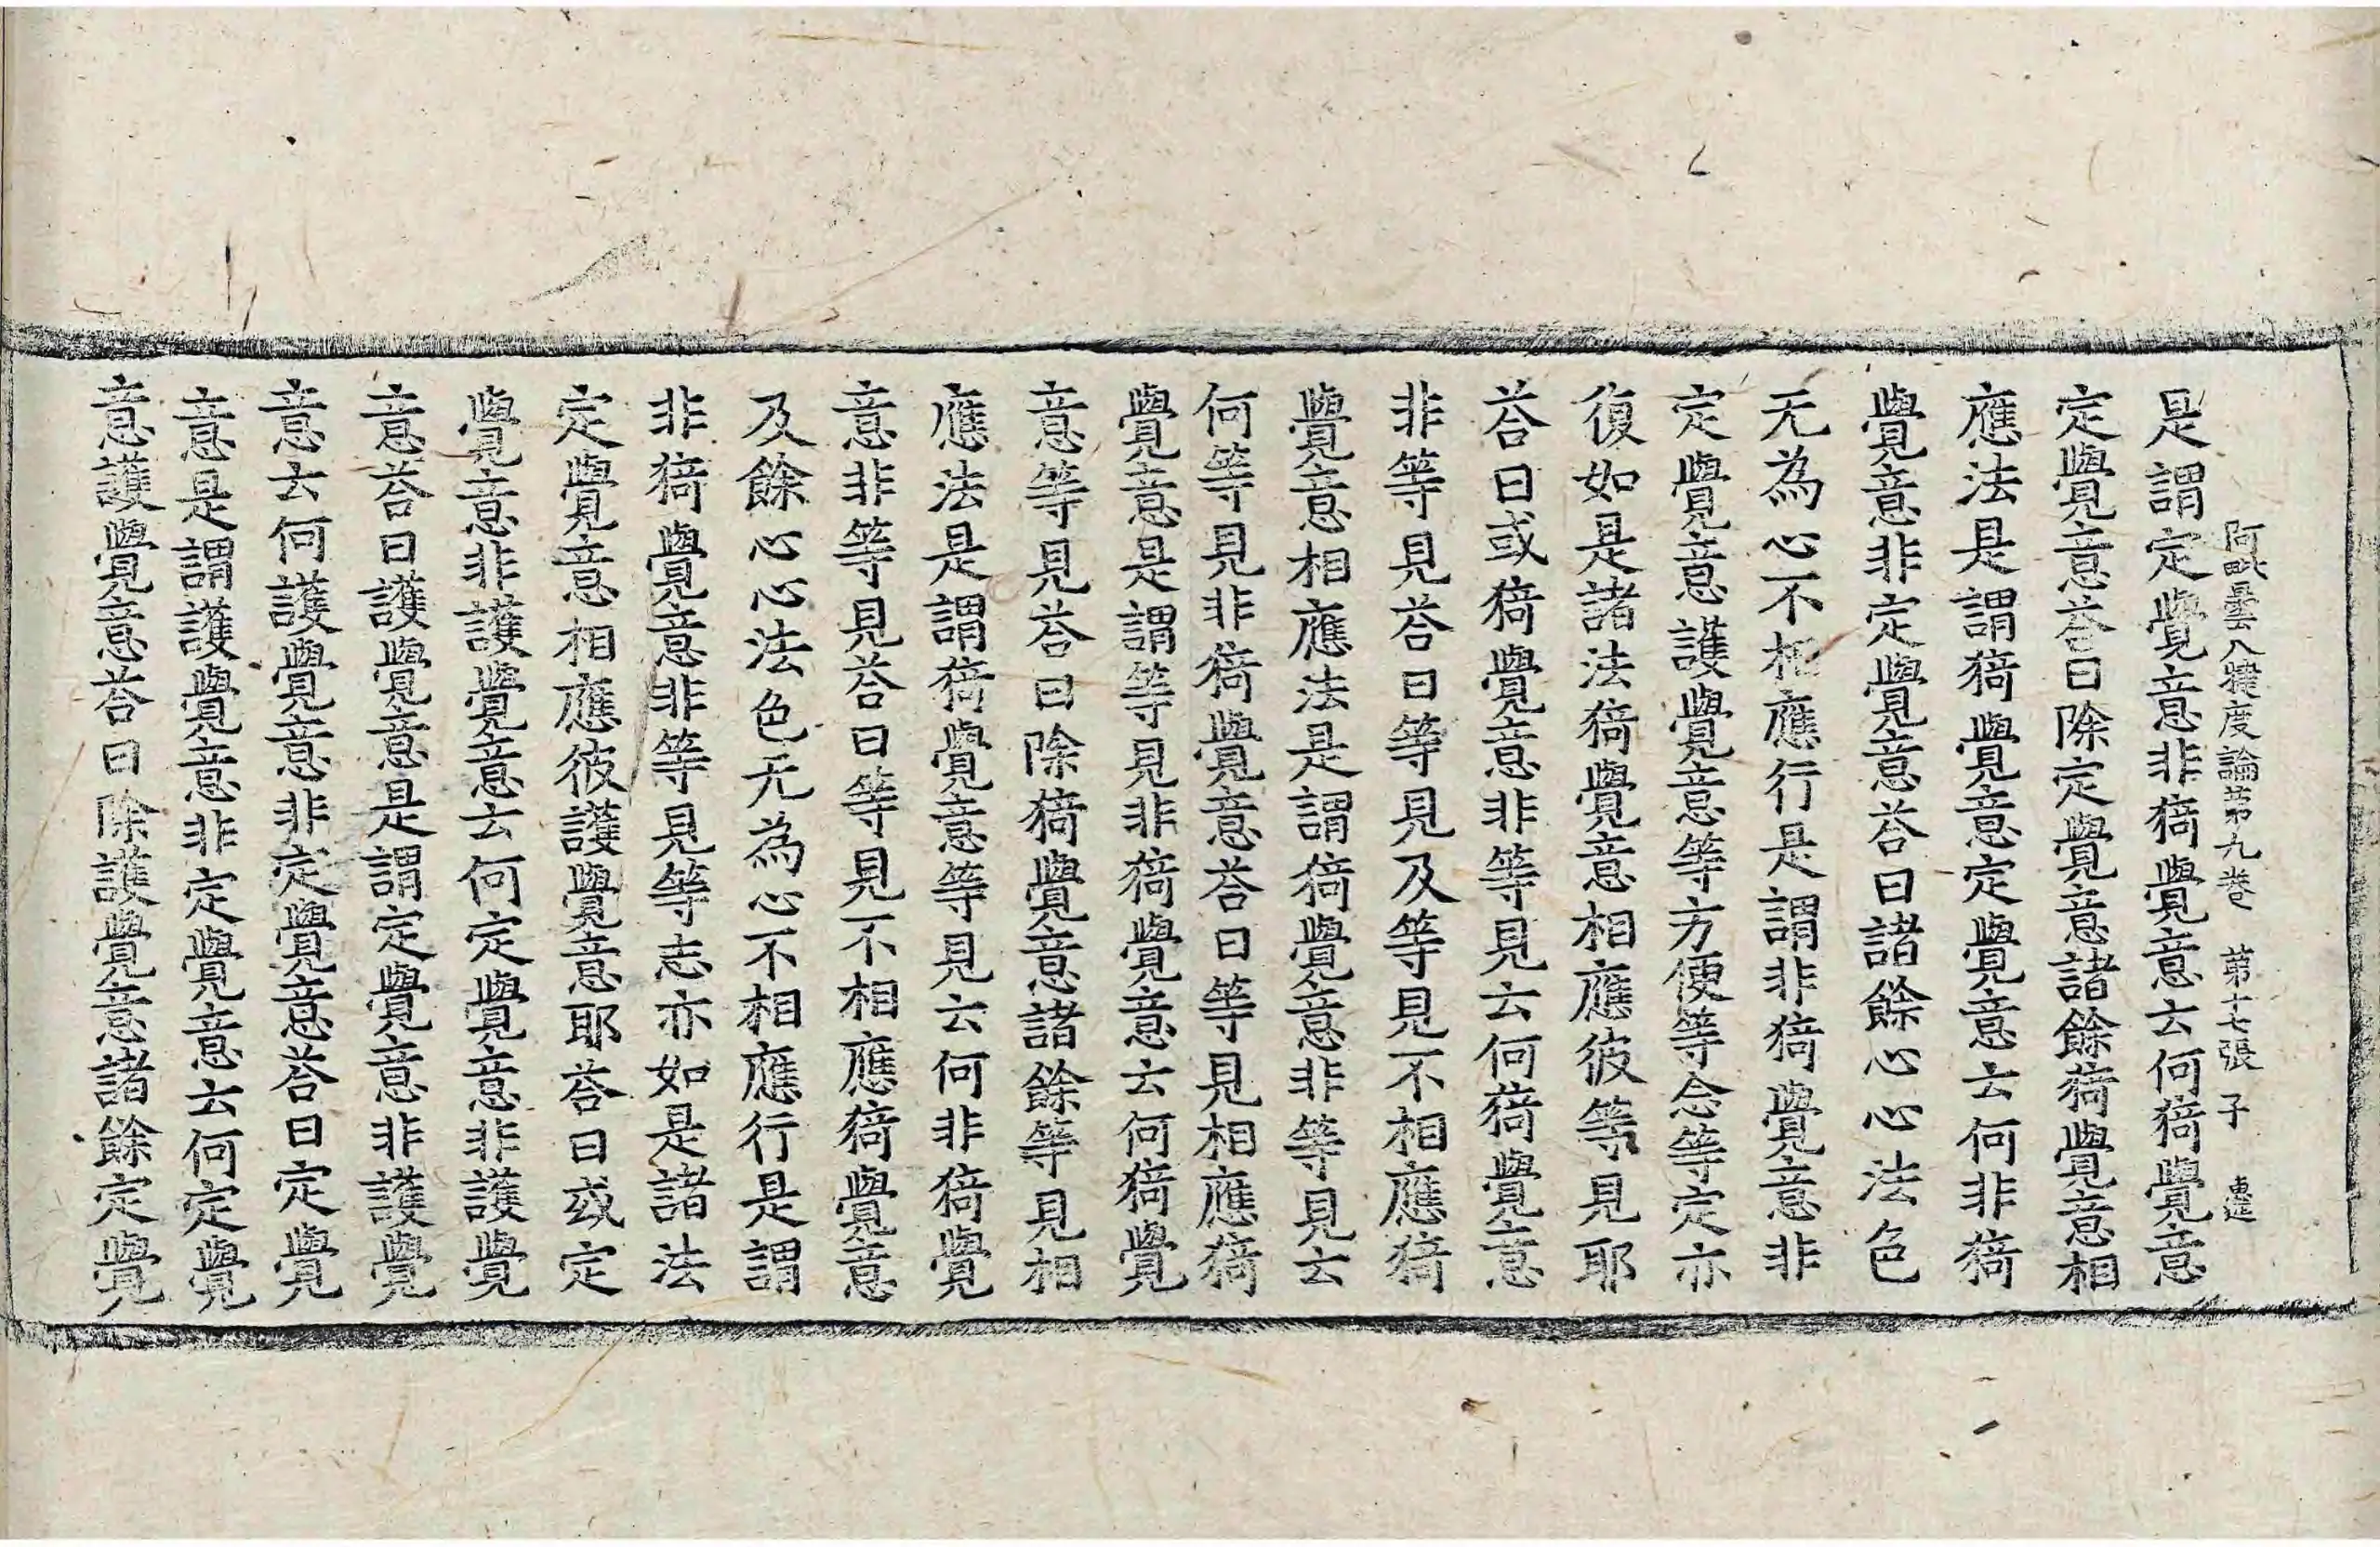 阿毗曇八犍度論第九卷　第十七張　子
是謂定覺意非猗覺意云何猗覺意
定覺意荅曰除定覺意諸餘猗覺意相
應法是謂猗覺意定覺意云何非猗
覺意非定覺意荅曰諸餘心心法色
无為心不相應行是謂非猗覺意非
定覺意護覺意等方便等念等定亦
復如是諸法猗覺意相應彼等見耶
荅曰或猗覺意非等見云何猗覺意
非等見荅曰等見及等見不相應猗
覺意相應法是謂猗覺意非等見云
何等見非猗覺意荅曰等見相應猗
覺意是謂等見非猗覺意云何猗覺
意等見荅曰除猗覺意諸餘等見相
應法是謂猗覺意等見云何非猗覺
意非等見荅曰等見不相應猗覺意
及餘心心法色无為心不相應行是謂
非猗覺意非等見等志亦如是諸法
定覺意相應彼護覺意耶荅曰或定
覺意非護覺意云何定覺意非護覺
意荅曰護覺意是謂定覺意非護覺
意云何護覺意非定覺意荅曰定覺
意是謂護覺意非定覺意云何定覺
意護覺意荅曰除護覺意諸餘定覺